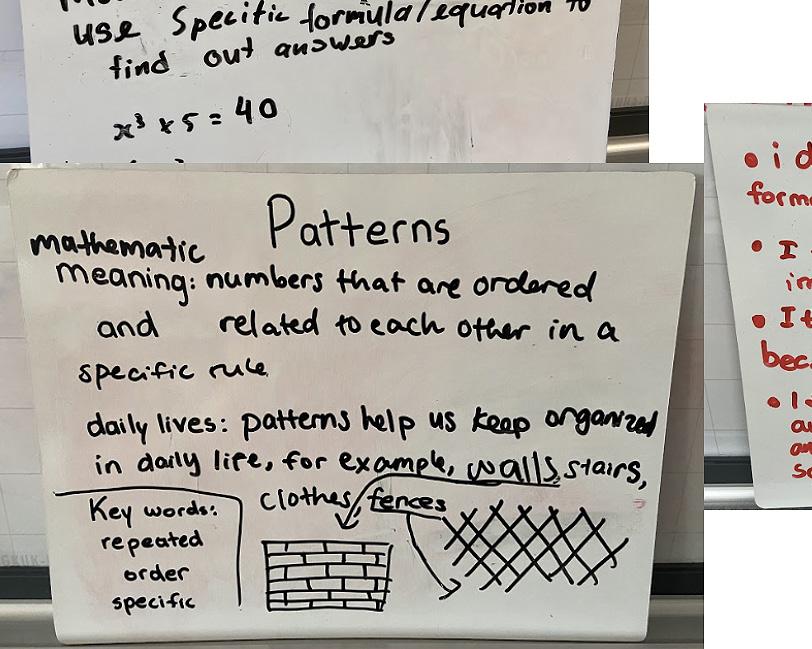 use Specific formula/equation to
find out answers
x³ × 5 = 40
Patterns
mathematic
meaning: numbers that are ordered
and related to each other in a
specific rule
daily lives: patterns help us keep organized
in daily life, for example, walls, stairs,
clothes, fences
Key words:
repeated
order
specific
• i d
form
• I
• I
bec
• I